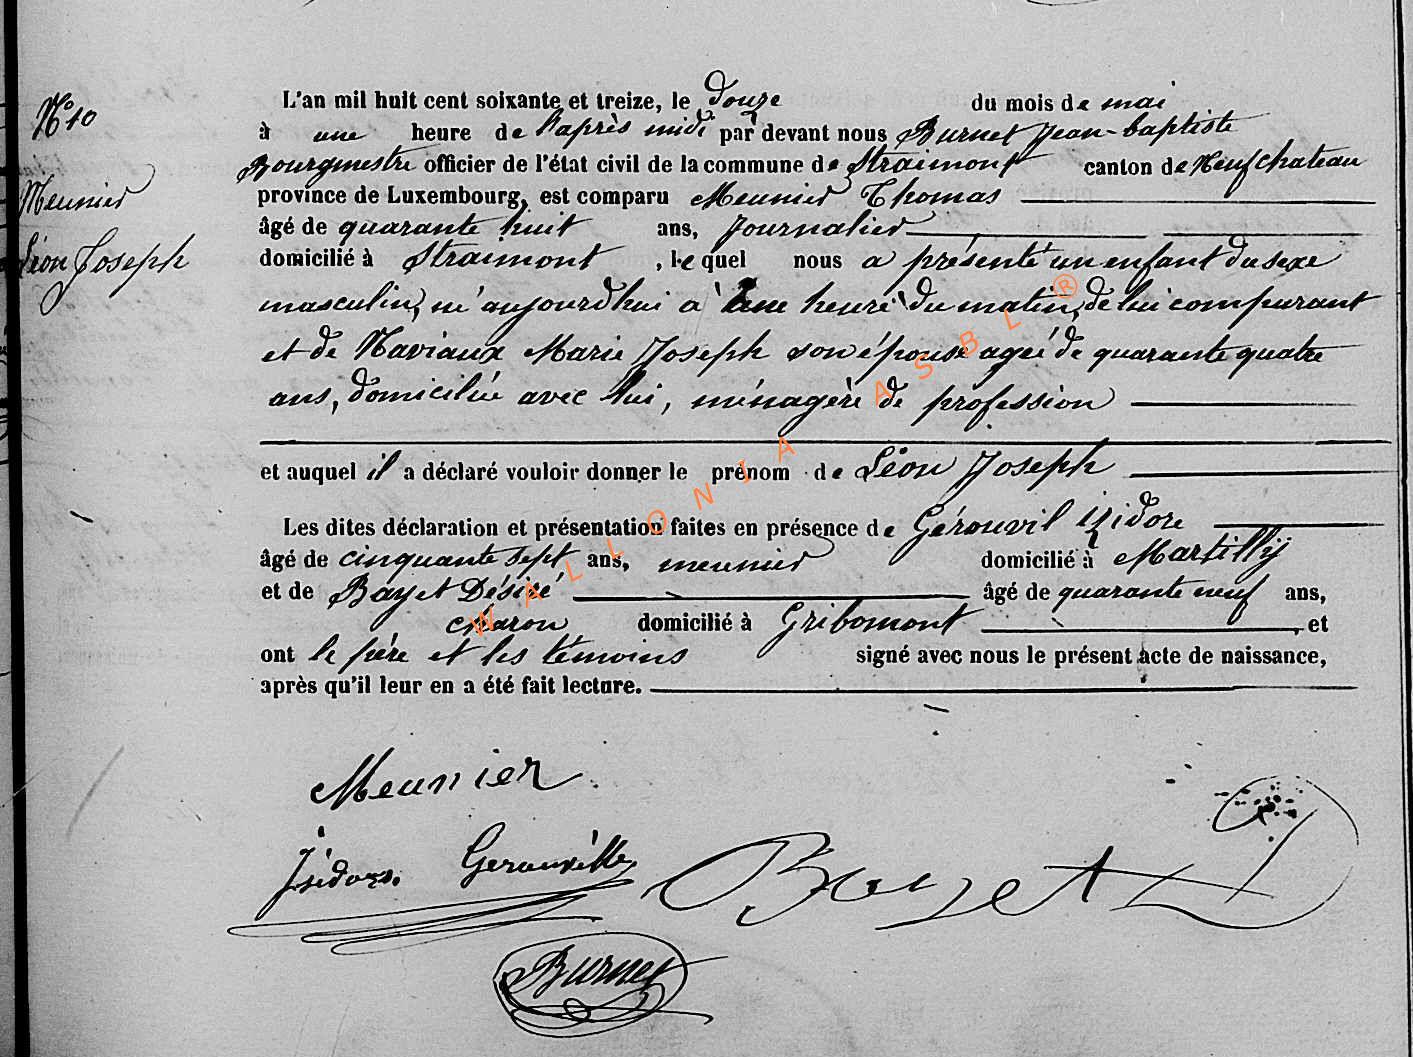 N° 10
Meunier
Léon Joseph
L'an mil huit cent soixante et treize, le douze du mois de mai
à une heure de l'après midi par devant nous Burnet Jean-baptiste
Bourgmestre officier de l'état civil de la commune de Straimont canton de Neufchateau
province de Luxembourg, est comparu Meunier Thomas
âgé de quarante huit ans, Journalier
domicilié à Straimont, lequel nous a présenté un enfant du sexe
masculin, né aujourd'hui à une heure du matin, de lui comparant
et de Naviaux Marie Joseph son épouse agée de quarante quatre
ans, domiciliée avec lui, ménagère de profession
et auquel il a déclaré vouloir donner le prénom de Léon Joseph
Les dites déclaration et présentation faites en présence de Gérouvil Izidore
âgé de cinquante sept ans, meunier domicilié à Martilly
et de Bayet Désiré âgé de quarante neuf ans,
charon domicilié à Gribomont, et
ont le père et les témoins signé avec nous le présent acte de naissance,
après qu'il leur en a été fait lecture.
Meunier
Isidore Gerouville
Bayet D
Burnet
WALLONIA ASBL ®